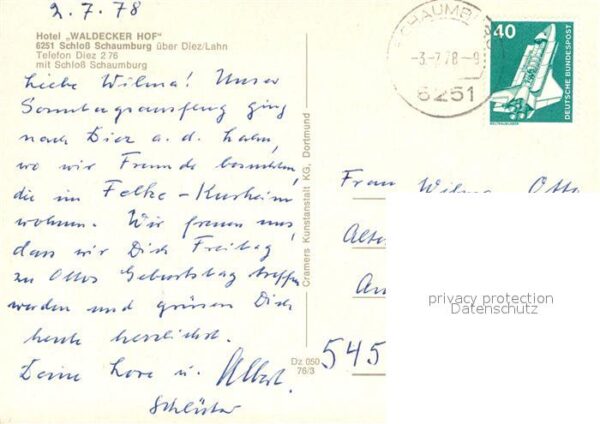 2.7.78
Hotel „WALDECKER HOF"
6251 Schloß Schaumburg über Diez/Lahn
Telefon Diez 2 76
mit Schloß Schaumburg
Liebe Wilma! Unser
Sonntagsausflug ging
nach Diez a. d. Lahn,
wo wir Freunde besuchten,
die im Felke-Kurheim
wohnen. Wir freuen uns,
dass wir Dich Freitag
zu Ottos Geburtstag treffen
werden und grüssen Dich
heute herzlichst.
Deine Lore u. Albert
Schlüter
Cramers Kunstanstalt KG, Dortmund
Dz 050
76/3
SCHAUMB
-3.-7.78-9
6251
40
DEUTSCHE BUNDESPOST
WELTRAUMLABOR
Frau Wilma Otto
Alte
545
privacy protection
Datenschutz